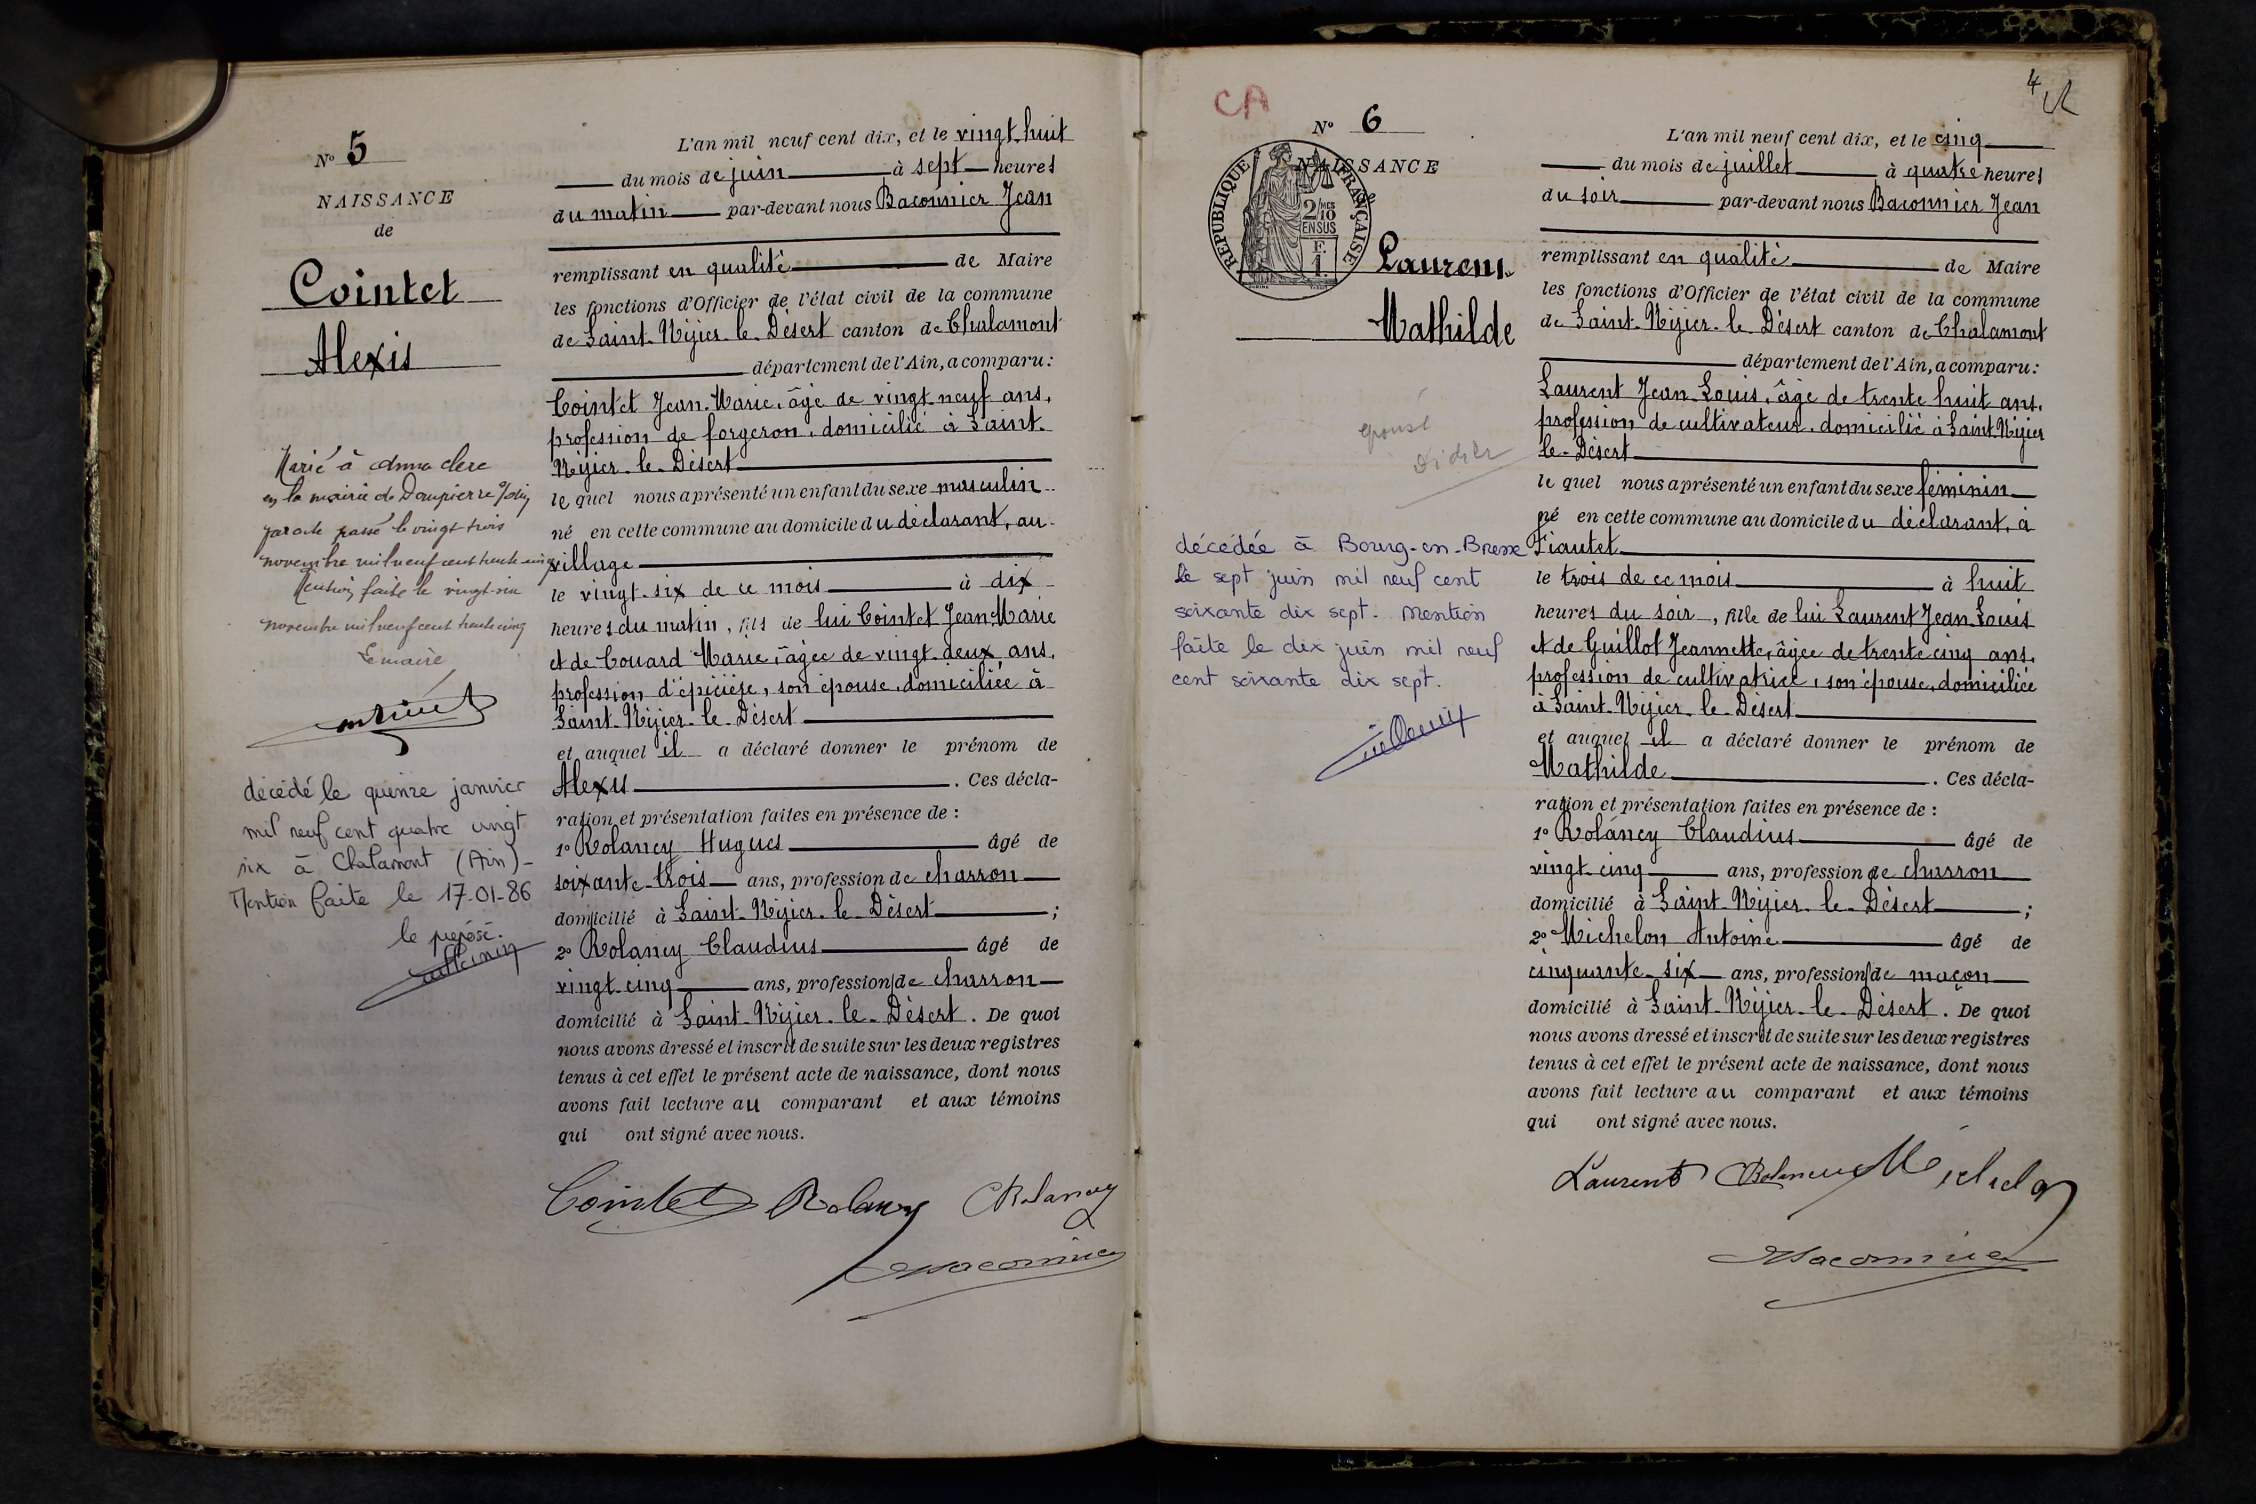 N° 5
NAISSANCE
de
Cointet
Alexis
Marié à Anna Clerc
en la mairie de Dompierre s/Ain
par acte passé le vingt trois
novembre mil neuf cent trente cinq
Mention faite le vingt six
novembre mil neuf cent trente cinq
Le maire
décédé le quinze janvier
mil neuf cent quatre vingt
six à Chalamont (Ain) -
Mention faite le 17-01-86
le préposé.
L'an mil neuf cent dix, et le vingt-huit
du mois de juin à sept heures
du matin par-devant nous Baconnier Jean
remplissant en qualité de Maire
les fonctions d'Officier de l'état civil de la commune
de Saint-Nizier-le-Désert canton de Chalamont
département de l'Ain, a comparu:
Cointet Jean-Marie, âgé de vingt-neuf ans,
profession de forgeron, domicilié à Saint-
Nizier-le-Désert
le quel nous a présenté un enfant du sexe masculin
né en cette commune au domicile du déclarant, au
village
le vingt-six de ce mois à dix
heures du matin, fils de lui Cointet Jean-Marie
et de Couard Marie, âgée de vingt-deux ans,
profession d'épicière, son épouse, domiciliée à
Saint-Nizier-le-Désert
et auquel il a déclaré donner le prénom de
Alexis. Ces décla-
ration et présentation faites en présence de :
1° Rolancy Hugues âgé de
soixante-trois ans, profession de charron
domicilié à Saint-Nizier-le-Désert;
2° Rolancy Claudius âgé de
vingt-cinq ans, profession de charron
domicilié à Saint-Nizier-le-Désert. De quoi
nous avons dressé et inscrit de suite sur les deux registres
tenus à cet effet le présent acte de naissance, dont nous
avons fait lecture au comparant et aux témoins
qui ont signé avec nous.
Cointet Rolancy C Rolancy
Baconnier
4
CA
N° 6
NAISSANCE
RÉPUBLIQUE FRANÇAISE
2/10 MES
EN SUS
F.
1.
Laurent
Mathilde
épouse
Didier
décédée à Bourg-en-Bresse
le sept juin mil neuf cent
soixante dix sept. Mention
faite le dix juin mil neuf
cent soixante dix sept.
L'an mil neuf cent dix, et le cinq
du mois de juillet à quatre heures
du soir par-devant nous Baconnier Jean
remplissant en qualité de Maire
les fonctions d'Officier de l'état civil de la commune
de Saint-Nizier-le-Désert canton de Chalamont
département de l'Ain, a comparu:
Laurent Jean-Louis, âgé de trente huit ans,
profession de cultivateur, domicilié à Saint-Nizier
le-Désert
le quel nous a présenté un enfant du sexe féminin
né en cette commune au domicile du déclarant, à
Fiautet
le trois de ce mois à huit
heures du soir, fille de lui Laurent Jean-Louis
et de Guillot Jeannette, âgée de trente cinq ans,
profession de cultivatrice, son épouse, domiciliée
à Saint-Nizier-le-Désert
et auquel il a déclaré donner le prénom de
Mathilde. Ces décla-
ration et présentation faites en présence de :
1° Rolancy Claudius âgé de
vingt-cinq ans, profession de charron
domicilié à Saint-Nizier-le-Désert;
2° Michelon Antoine âgé de
cinquante-six ans, profession de maçon
domicilié à Saint-Nizier-le-Désert. De quoi
nous avons dressé et inscrit de suite sur les deux registres
tenus à cet effet le présent acte de naissance, dont nous
avons fait lecture au comparant et aux témoins
qui ont signé avec nous.
Laurent C Rolancy Michelon
Baconnier